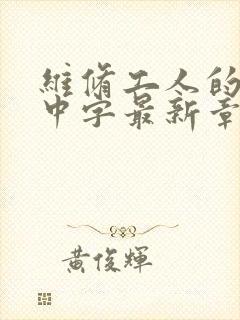 維脩工人的
中字最新章
黃俊輝